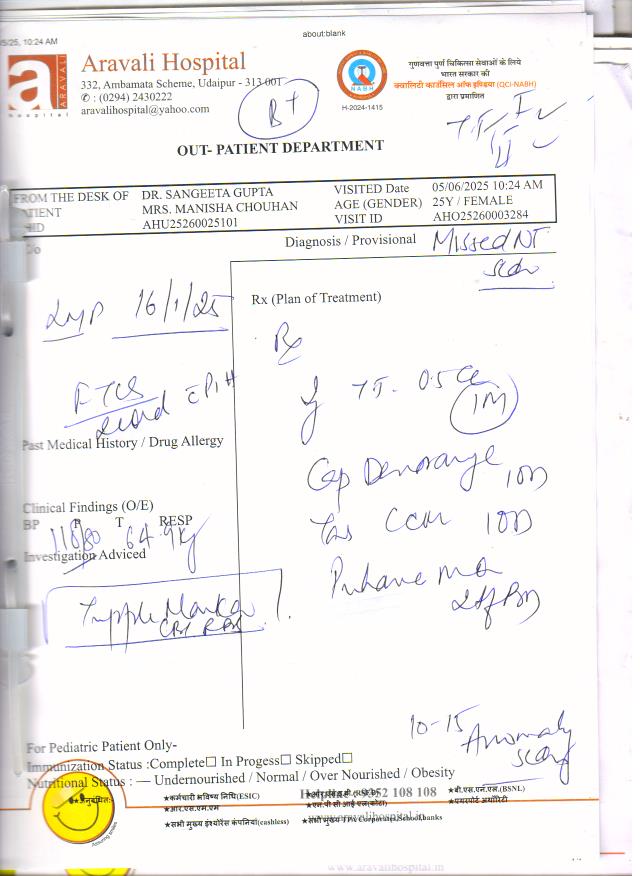 about:blank
5/25, 10:24 AM
Aravali Hospital
332, Ambamata Scheme, Udaipur - 313 001
✆ : (0294) 2430222
aravalihospital@yahoo.com
a
ARAVALI
hospital
B+
NABH
H-2024-1415
गुणवत्ता पुर्ण चिकित्सा सेवाओं के लिये
भारत सरकार की
क्वालिटी काउंसिल ऑफ इण्डिया (QCI-NABH)
द्वारा प्रमाणित
T.T. I
II
OUT- PATIENT DEPARTMENT
FROM THE DESK OF DR. SANGEETA GUPTA VISITED Date 05/06/2025 10:24 AM
ATIENT MRS. MANISHA CHOUHAN AGE (GENDER) 25Y / FEMALE
HID AHU25260025101 VISIT ID AHO25260003284
Diagnosis / Provisional Missed NT
scan
LMP 16/1/25
Rx (Plan of Treatment)
Rx
FTCS
Past Medical History / Drug Allergy
Inj T.T. 0.5 cc IM
Cap 10D
Clinical Findings (O/E)
BP P T RESP
118/80 64.9kg
Tab CCM 10D
Investigation Adviced
Triple Marker
CBC RBS
10-15 Anomaly
scan
For Pediatric Patient Only-
Immunization Status :Complete☐ In Progess☐ Skipped☐
Nutritional Status : — Undernourished / Normal / Over Nourished / Obesity
★कर्मचारी भविष्य निधि(ESIC)
★आर.एस.एम.एम
★सभी मुख्य इंश्योरेंस कंपनियां(cashless)
★बी.एस.एन.एल.(BSNL)
★एयरपोर्ट अथॉरिटी
www.aravalihospital.in